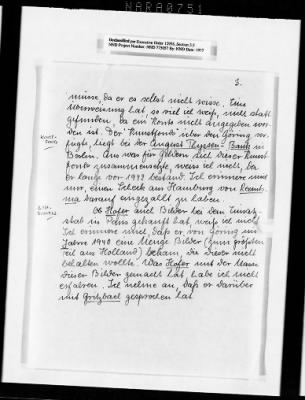 NARA0751
Declassified per Executive Order 12958, Section 3.5
NND Project Number: NND 775057 By: NND Date: 1977
3.
müsse, da er es selbst nicht wisse. Eine
Überweisung hat, so viel ich weiß, nicht statt-
gefunden, da ein Konto nicht angegeben wor-
den ist. Der "Kunstfonds" über den Göring ver-
fügte, liegt bei der August Thyssen-Bank in
Berlin. Aus was für Geldern sich dieser Kunst-
fonds zusammensetzte, weiss ich nicht, da
er lange vor 1942 bestand. Ich erinnere mich
nur, einen Scheck aus Hamburg von
darauf eingezahlt zu haben.
Ob Hofer auch Bilder bei dem Einsatz-
stab in Paris gekauft hat, weiß ich nicht.
Ich erinnere mich, daß er von Göring im
Jahre 1940 eine Menge Bilder (zum größten
Teil aus Holland) bekam, die dieser nicht
behalten wollte. Was Hofer mit der Masse
dieser Bilder gemacht hat, habe ich nicht
erfahren. Ich nehme an, daß er darüber
mit gesprochen hat.